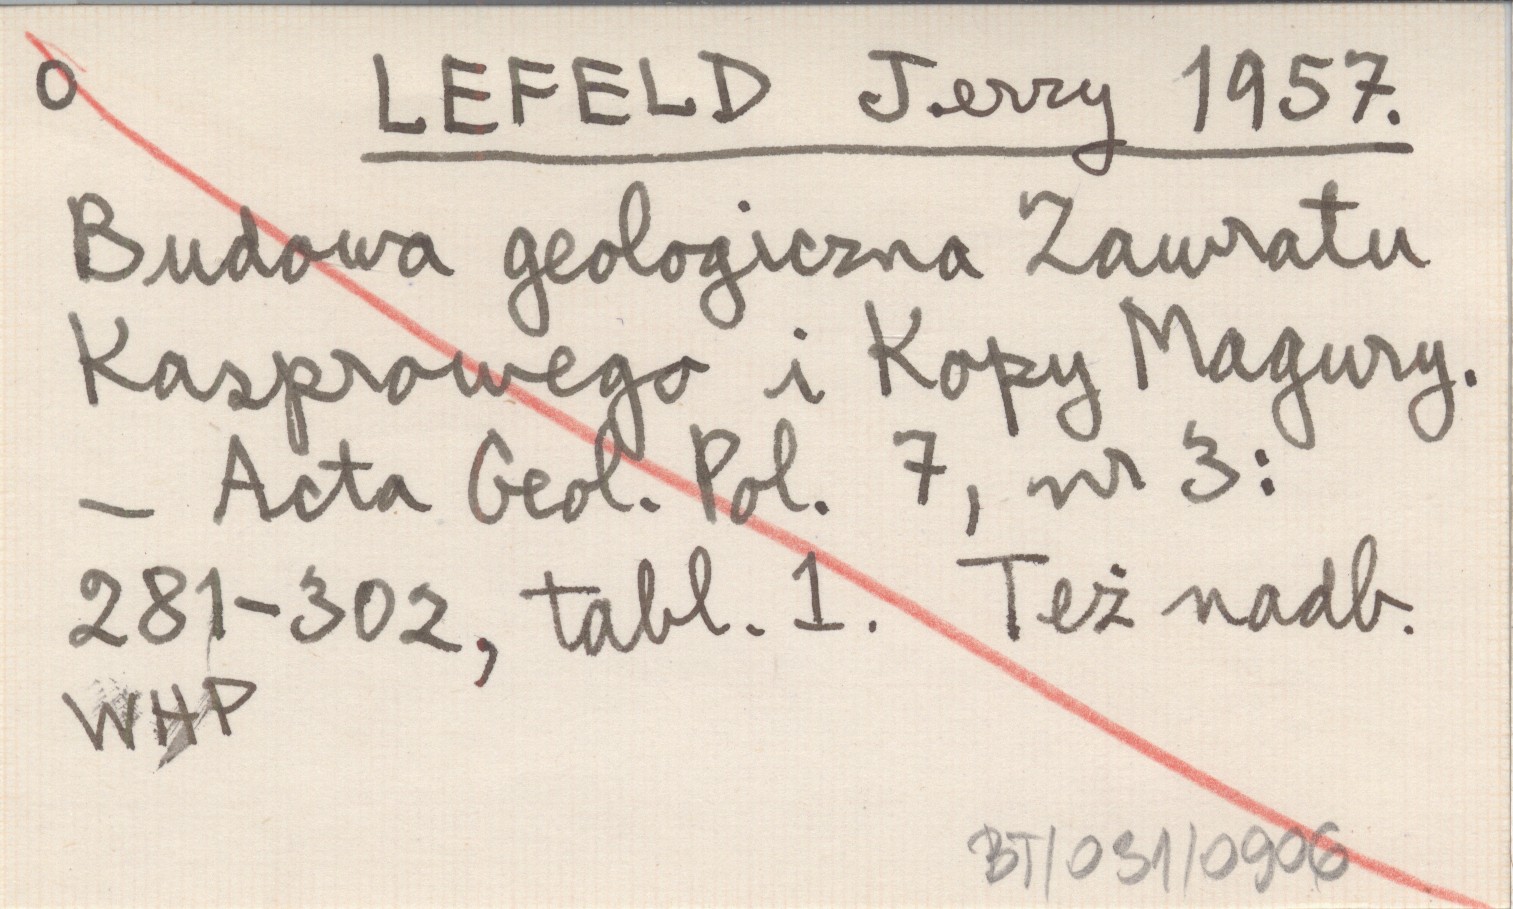 O LEFELD Jerzy 1957.
Budowa geologiczna Zawratu
Kasprowego i Kopy Magury.
– Acta Geol. Pol. 7, nr 3:
281-302, tabl. 1. Też nadb.
WHP
BT/031/0906